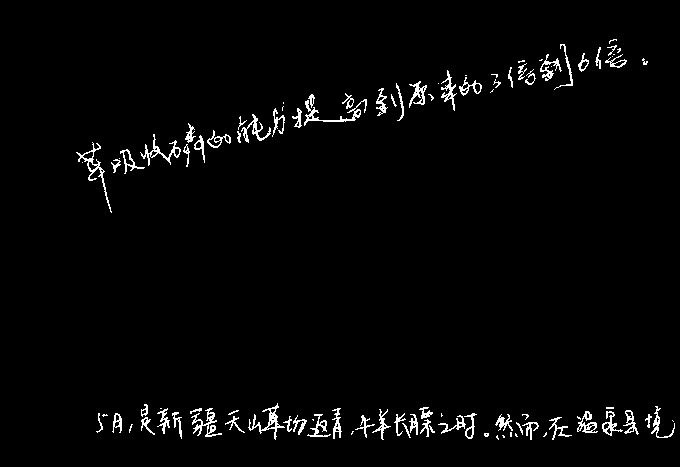 草吸收磷的能力提高到原来的3倍到6倍。
5月,是新疆天山草场返青,牛羊长膘之时。然而,在温泉县境